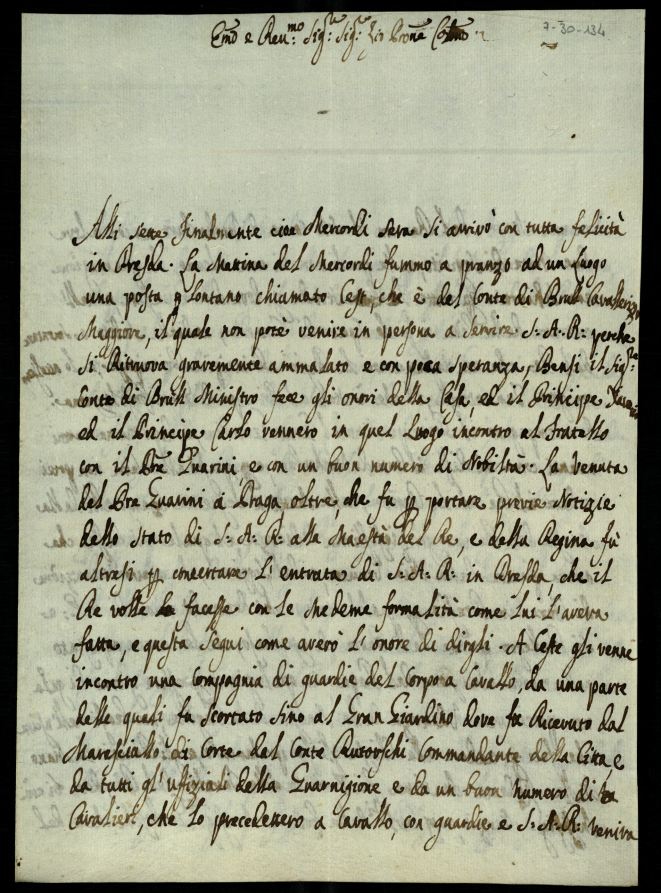 7-30-134
Emo e Reu:mo Sig:re Sig:re Zio Prone Colmo
Alli sette finalmente cioe Mercordi sera si arrivò con tutta felicità
in Dresda. La Mattina del Mercordi fummo a pranzo ad un Luogo
una posta lontano chiamato Cest, che è del Conte di Brull Cavalleriz
Maggiore, il quale non potè venire in persona a servire S: A: R: perche
si Ritruova gravemente ammalato e con poca speranza, Bensi il Sig:re
Conte di Brull Ministro fece gli onori della Casa, ed il Principe
ed il Principe Carlo vennero in quel Luogo incontro al Fratello
con il Pre Guarini e con un buon numero di Nobiltà. La venuta
del Pre Guarini à Praga, oltre, che fu p portare previe Notizie
dello stato di S: A: R: alla Maestà del Re, e della Regina fù
altresi p concertare l'entrata di S: A: R: in Dresda, che il
Re volle facesse con le medeme formalità come lui l'aveva
fatta, e questa segui come averò l'onore di dirgli. A Ceste gli venne
incontro una Compagnia di guardie del Corpo a Cavallo, da una parte
delle quali fu scortato sino al Gran Giardino dove fu Ricevuto dal
Maresciallo di Corte dal Conte Rutowschi Commandante della Citta e
da tutti gl'uffiziali della Guarnigione e da un buon numero di
Cavalieri, che lo precedettero a Cavallo, con guardie e S: A: R: veniva